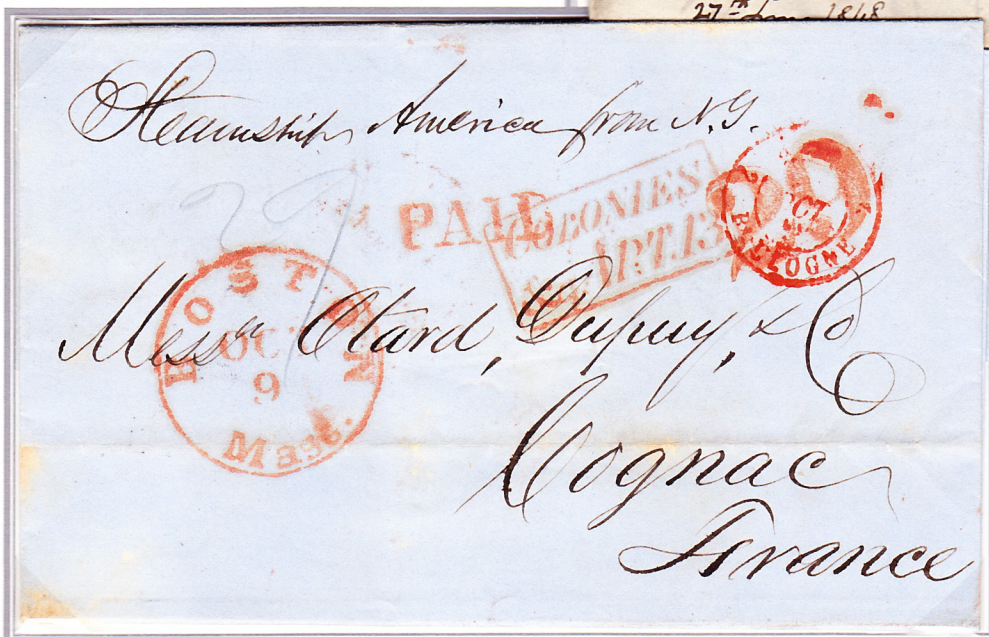 27th 1848
Steamship America from N.Y.
PAID
COLONIES
&c. ART. 13
OCT
BOULOGNE
BOSTON
OCT
9
Mass.
Messrs Otard, Dupuy, & Co
Cognac
France